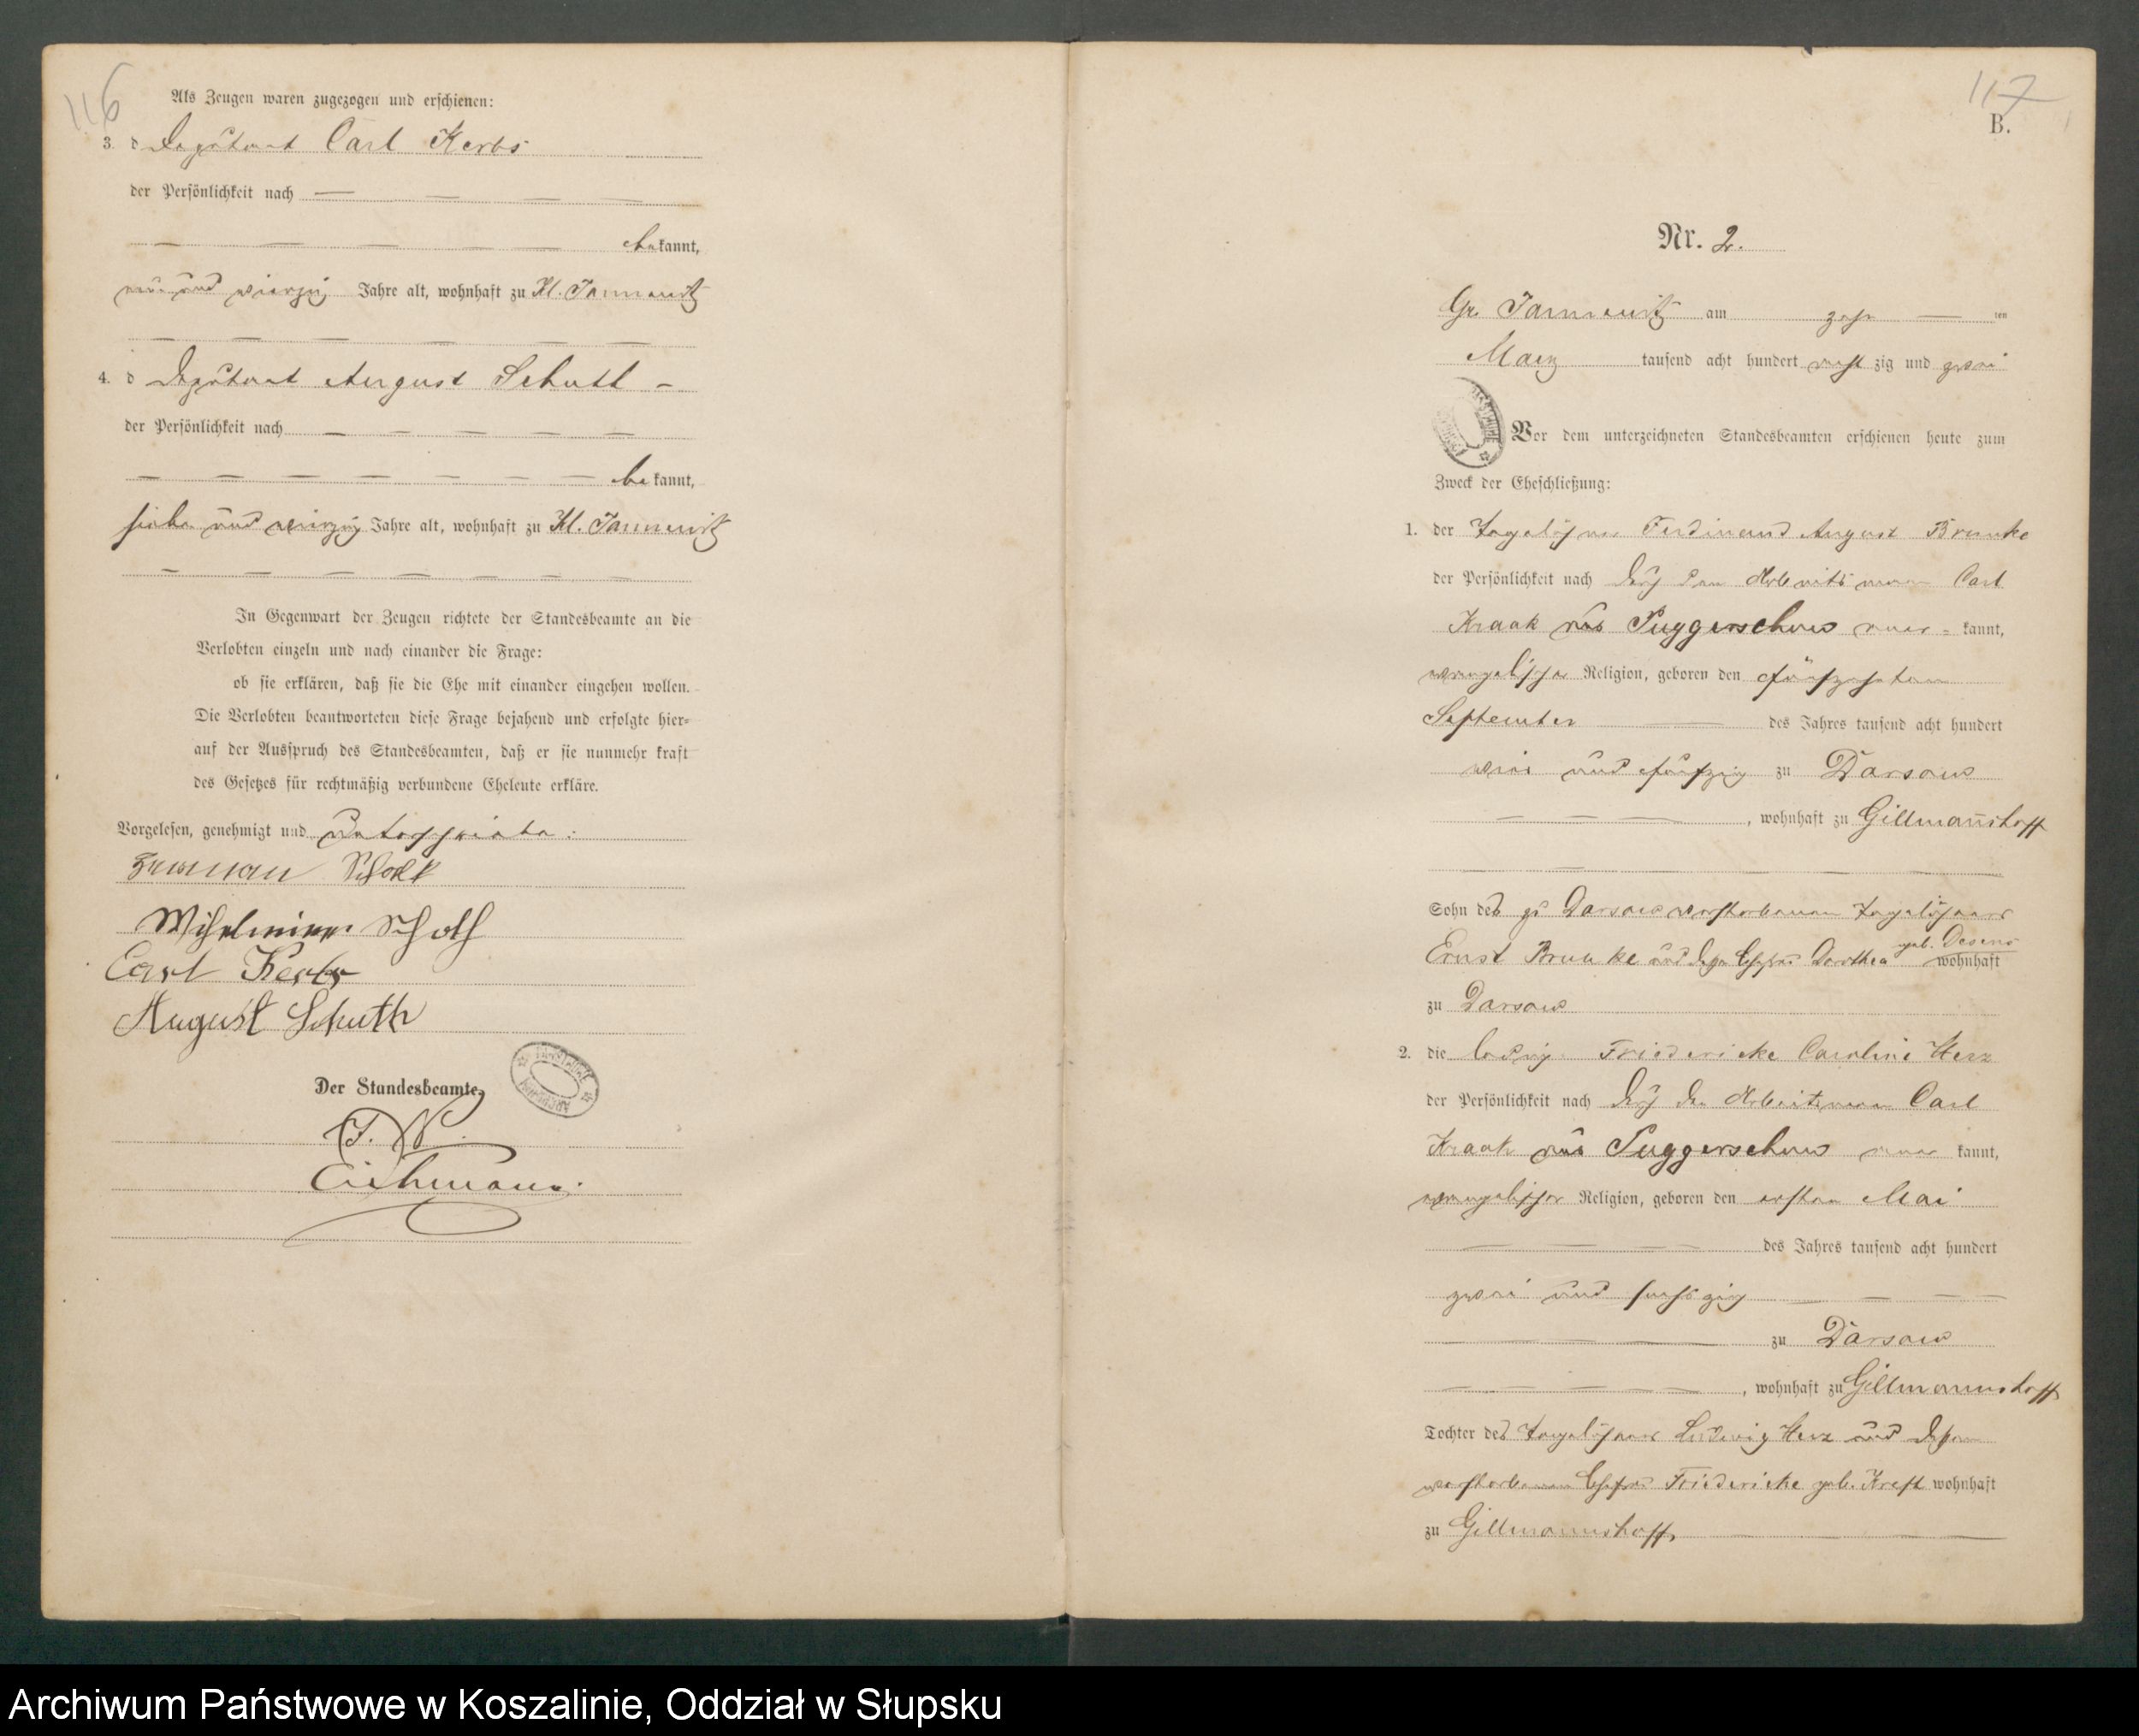 116
Als Zeugen waren zugezogen und erschienen:
3. d Deputant Carl Kerbs
der Persönlichkeit nach
bekannt,
und vierzig Jahre alt, wohnhaft zu Kl. Jannewitz
4. d Deputant August Schutt
der Persönlichkeit nach
bekannt,
sieben und vierzig Jahre alt, wohnhaft zu Kl. Jannewitz
In Gegenwart der Zeugen richtete der Standesbeamte an die
Verlobten einzeln und nach einander die Frage:
ob sie erklären, daß sie die Ehe mit einander eingehen wollen.
Die Verlobten beantworteten diese Frage bejahend und erfolgte hier=
auf der Ausspruch des Standesbeamten, daß er sie nunmehr kraft
des Gesetzes für rechtmäßig verbundene Eheleute erkläre.
Vorgelesen, genehmigt und unterschrieben:
Carl Kerbs
August Schuth
Der Standesbeamte,
J. V.
Eichmann.
117
B.
Nr. 2.
Gr. Jannewitz am zehn ten
Maerz tausend acht hundert acht zig und zwei
Vor dem unterzeichneten Standesbeamten erschienen heute zum
Zweck der Eheschließung:
1. der Tagelöhner Ferdinand August Brunke
der Persönlichkeit nach durch den Arbeitsmann Carl
Kraak aus Puggerschow aner= kannt,
evangelischer Religion, geboren den fünfzehnten
September des Jahres tausend acht hundert
vier und fünfzig zu Darsow
, wohnhaft zu Gillmannshoff
Sohn des zu Darsow verstorbenen Tagelöhners
Ernst Brunke und dessen Ehefrau Dorothea geb. Desens wohnhaft
zu Darsow
2. die ledige Friedericke Caroline Herz
der Persönlichkeit nach durch den Arbeitsmann Carl
Kraak aus Puggerschow aner kannt,
evangelischer Religion, geboren den ersten Mai
des Jahres tausend acht hundert
zwei und sechszig
zu Darsow
, wohnhaft zu Gillmannshoff
Tochter des Tagelöhners Ludwig Herz und dessen
verstorbenen Ehefrau Friedericke geb. Kreft wohnhaft
zu Gillmannshoff,
Archiwum Państwowe w Koszalinie, Oddział w Słupsku